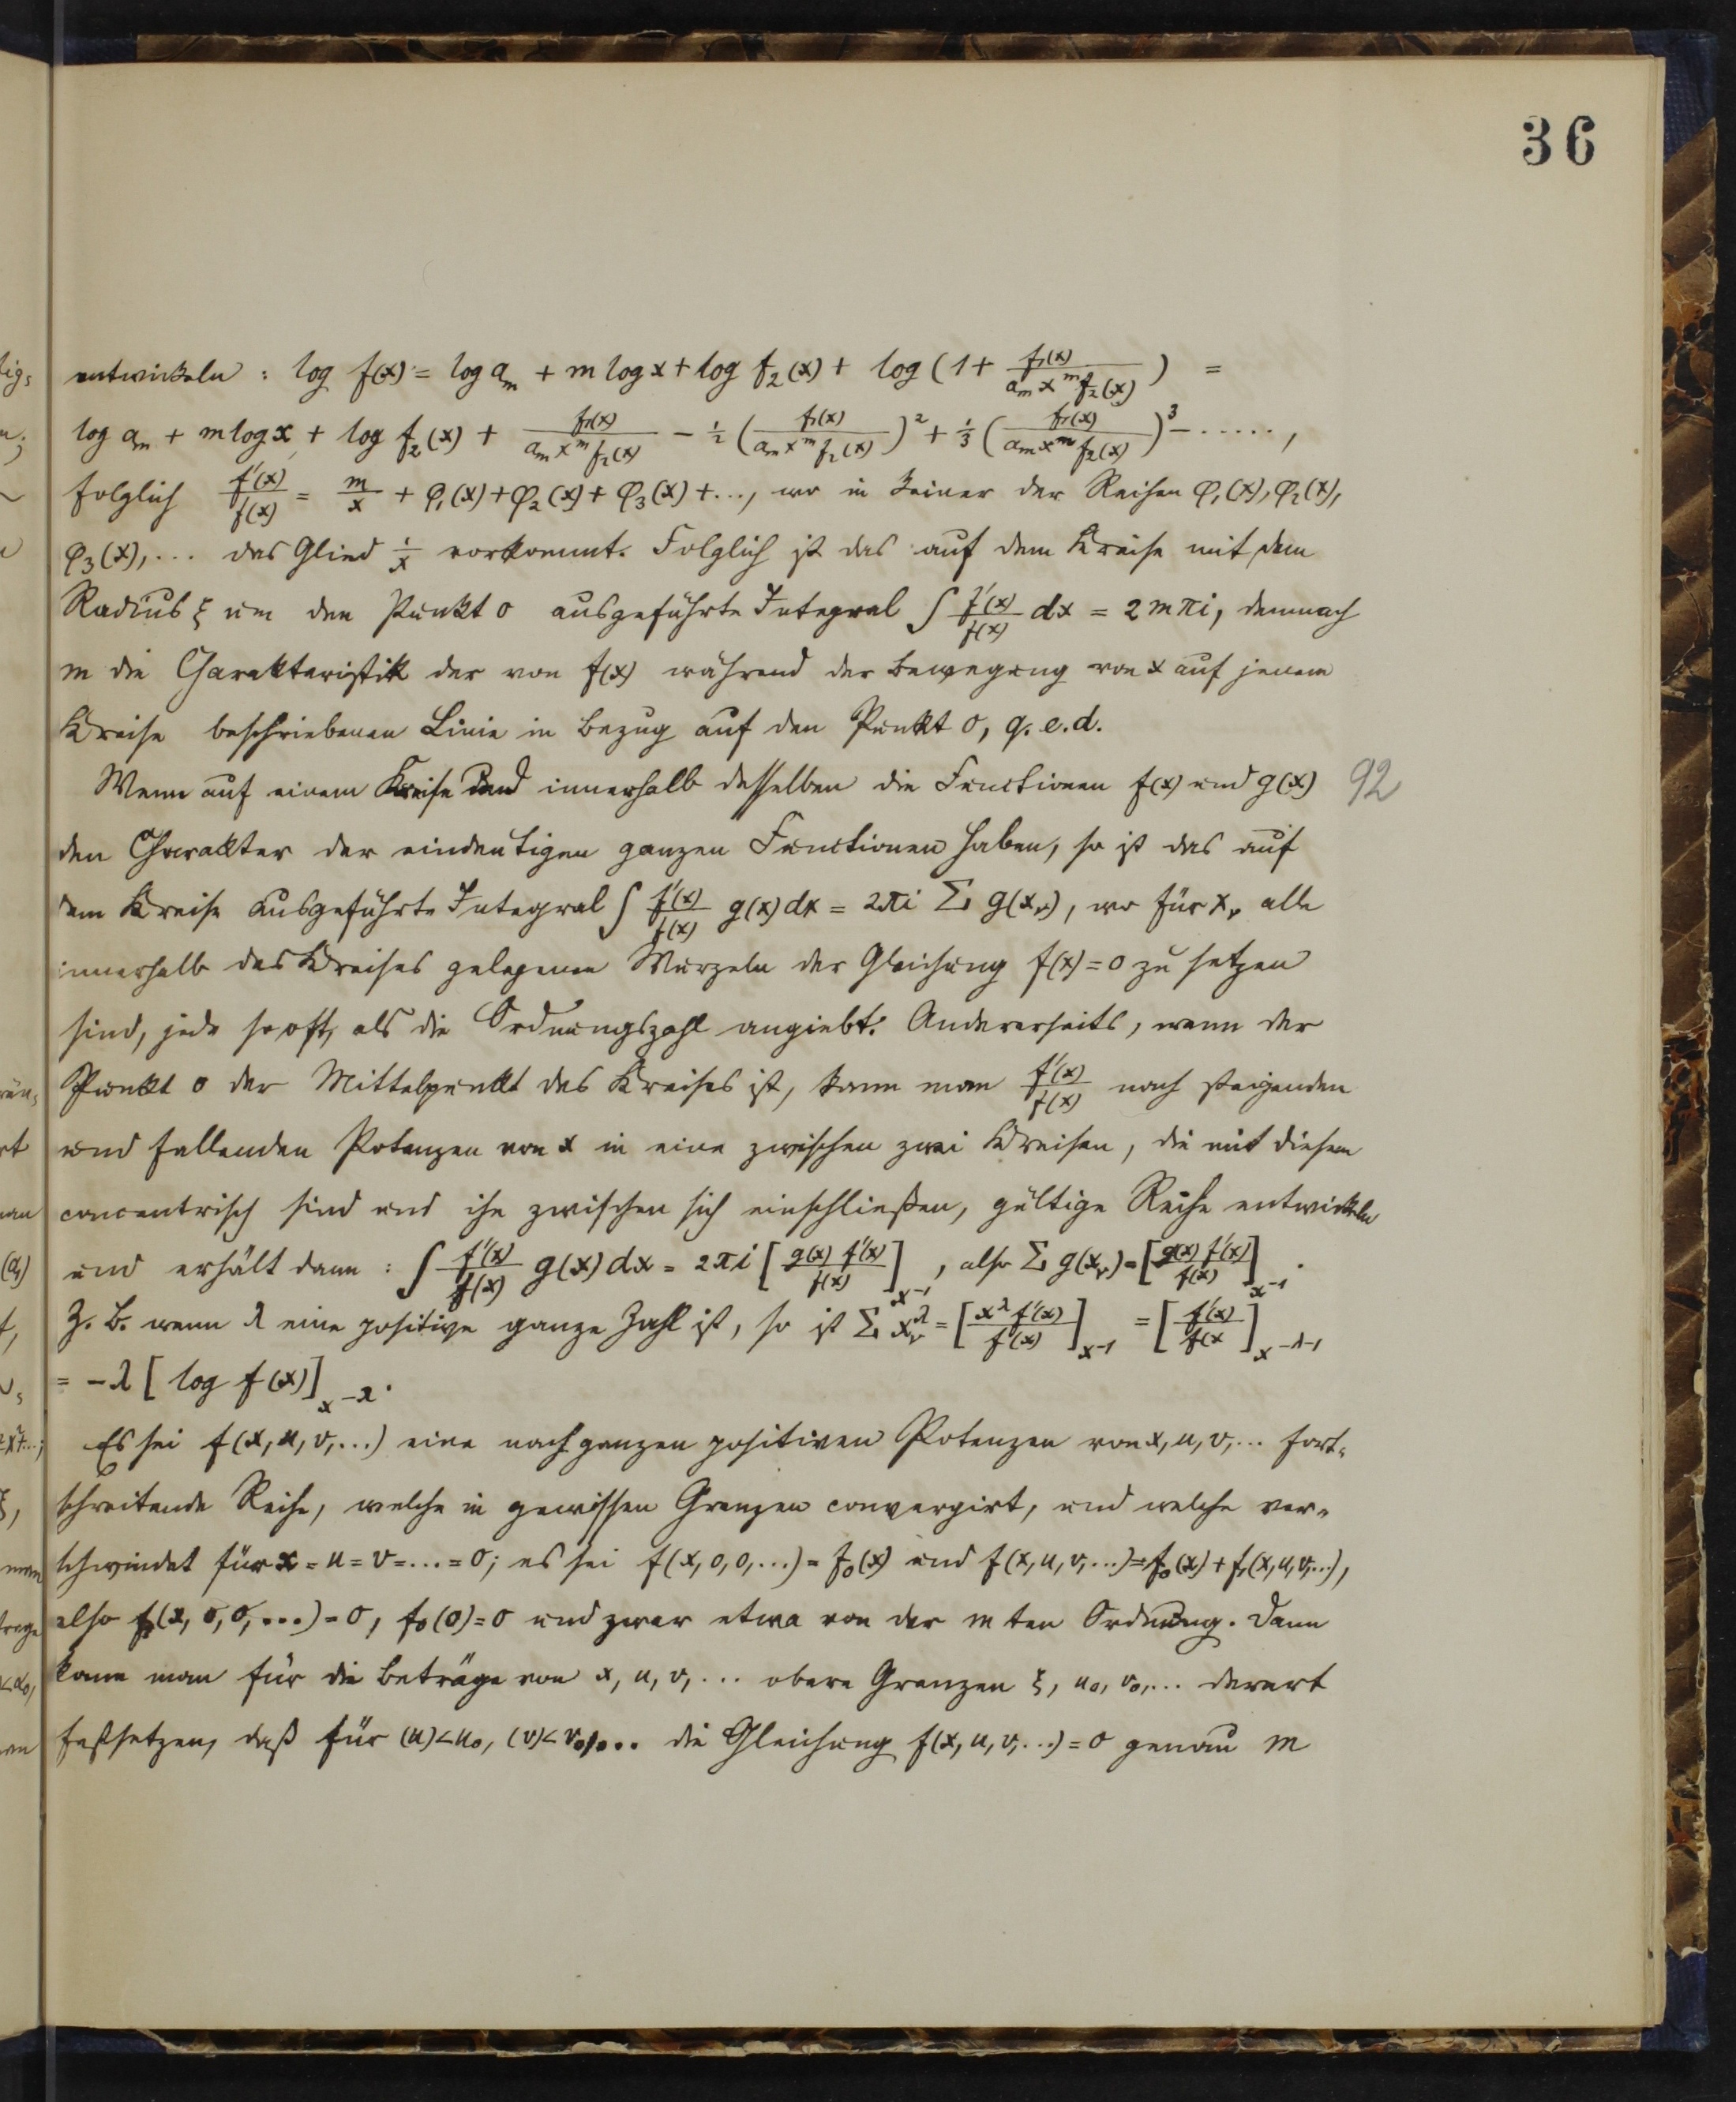 36
entwickeln: log f(x) = log a_m + m log x + log f_2(x) + log (1 + f_1(x)/(a_m x^m f_2(x))) =
log a_m + m log x + log f_2(x) + f_1(x)/(a_m x^m f_2(x)) − 1/2 (f_1(x)/(a_m x^m f_2(x)))^2 + 1/3 (f_1(x)/(a_m x^m f_2(x)))^3 − ·····,
folglich f'(x)/f(x) = m/x + φ_1(x) + φ_2(x) + φ_3(x) + ..., wo in keiner der Reihen φ_1(x), φ_2(x),
φ_3(x), ... das Glied 1/x vorkommt. Folglich ist das auf dem Kreise mit dem
Radius ξ um den Punkt 0 ausgeführte Integral ∫ f'(x)/f(x) dx = 2mπi, demnach
m die Charakteristik der von f(x) während der Bewegung von x auf jenem
Kreise beschriebenen Linie in Bezug auf den Punkt 0, q. e. d.
Wenn auf einem Kreise und innerhalb desselben die Functionen f(x) und g(x) 92
den Charakter der eindeutigen ganzen Functionen haben, so ist das auf
dem Kreise ausgeführte Integral ∫ f'(x)/f(x) g(x) dx = 2πi Σ g(x_ν), wo für x_ν alle
innerhalb des Kreises gelegenen Wurzeln der Gleichung f(x) = 0 zu setzen
sind, jede so oft, als die Ordnungszahl angiebt. Andererseits, wenn der
Punkt 0 der Mittelpunkt des Kreises ist, kann man f'(x)/f(x) nach steigenden
und fallenden Potenzen von x in eine zwischen zwei Kreisen, die mit diesem
concentrisch sind und ihn zwischen sich einschließen, gültige Reihe entwickeln
und erhält dann: ∫ f'(x)/f(x) g(x) dx = 2πi [g(x) f'(x)/f(x)]_{x^{-1}}, also Σ g(x_ν) = [g(x) f'(x)/f(x)]_{x^{-1}}.
Z. B. wenn λ eine positive ganze Zahl ist, so ist Σ x_ν^λ = [x^λ f'(x)/f(x)]_{x^{-1}} = [f'(x)/f(x]_{x^{-λ-1}}
= −λ [log f(x)]_{x^{-λ}}.
Es sei f(x, u, v, ...) eine nach ganzen positiven Potenzen von x, u, v, ... fort-
schreitende Reihe, welche in gewissen Grenzen convergirt, und welche ver-
schwindet für x = u = v = ... = 0; es sei f(x, 0, 0, ...) = f_0(x) und f(x, u, v, ...) = f_0(x) + f_1(x, u, v, ...),
also f_1(x, 0, 0, ...) = 0, f_0(0) = 0 und zwar etwa von der m ten Ordnung. Dann
kann man für die Beträge von x, u, v, ... obere Grenzen ξ, u_0, v_0, ... derart
festsetzen, daß für (u) < u_0, (v) < v_0, ... die Gleichung f(x, u, v, ...) = 0 genau m